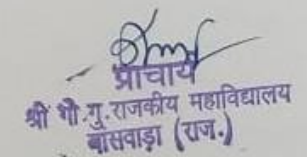 प्राचार्य
श्री गो.गु.राजकीय महाविद्यालय
बांसवाड़ा (राज.)